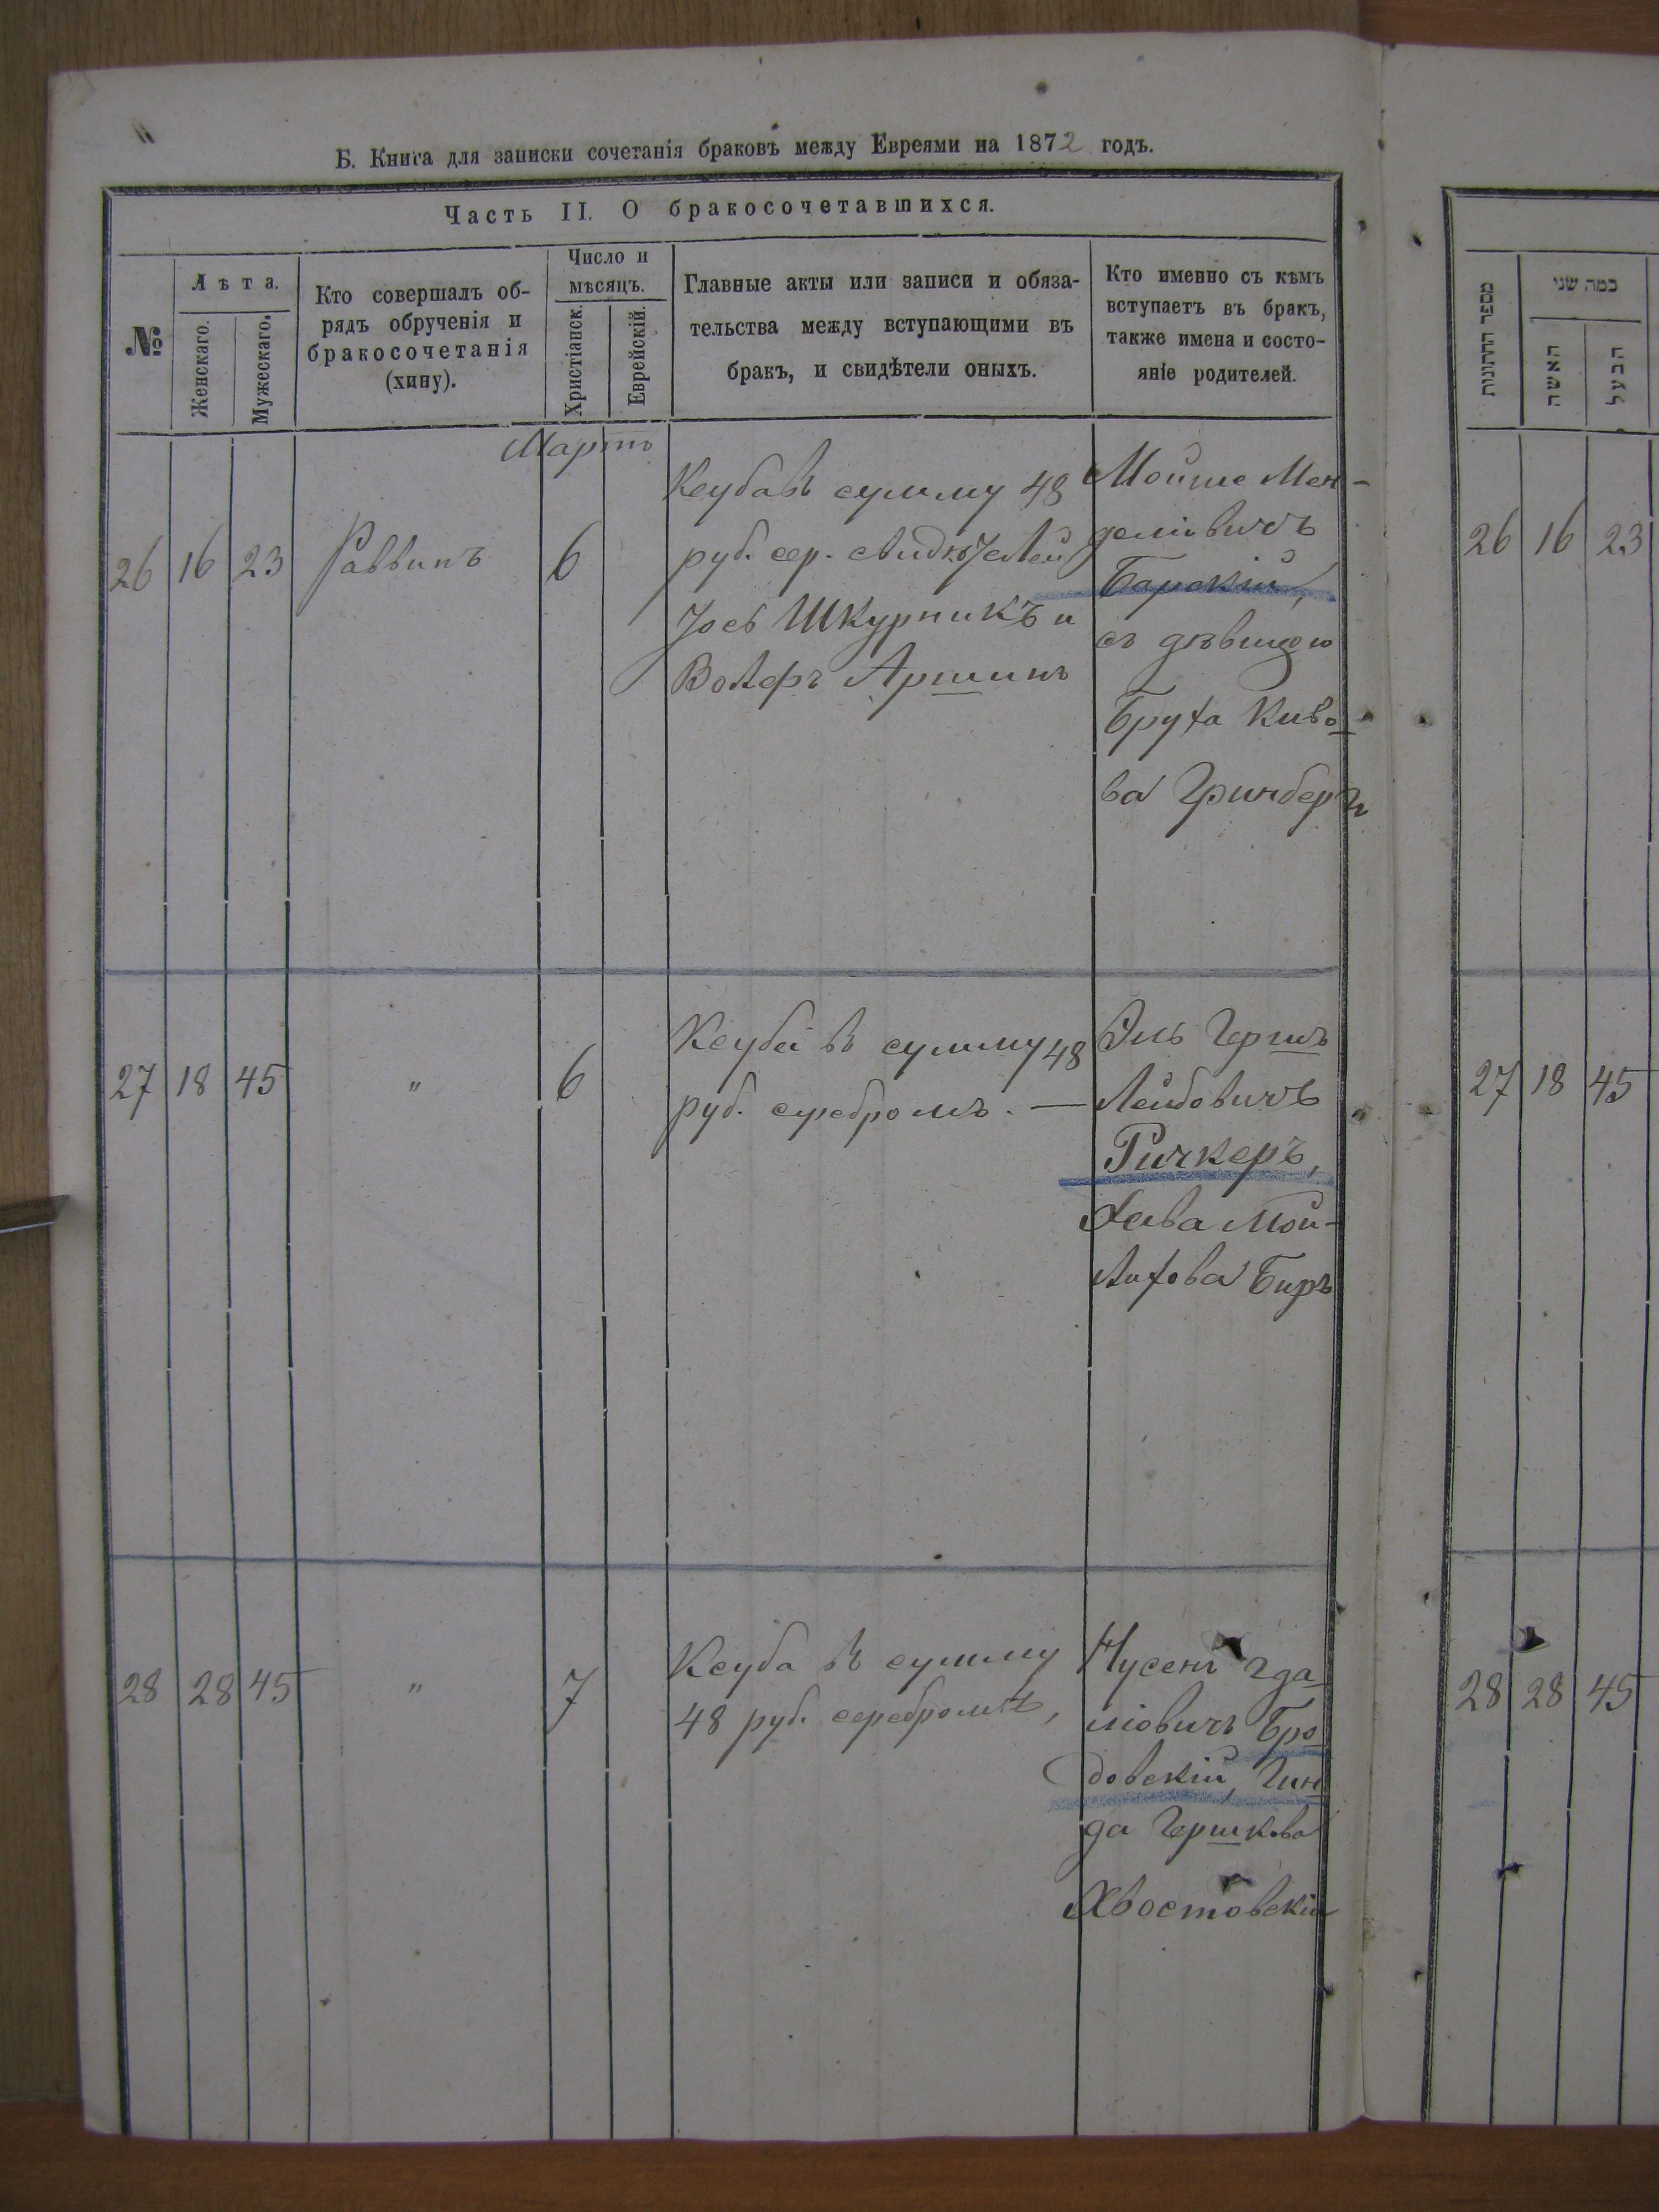 Б. Книга для записки сочетанія браковъ между Евреями на 1872 годъ.
Часть II. О бракосочетавшихся.
№
Лѣта.
Женскаго.
Мужескаго.
Кто совершалъ об-
рядъ обрученія и
бракосочетанія
(хипу).
Число и
мѣсяцъ.
Христіанск.
Еврейскій.
Главные акты или записи и обяза-
тельства между вступающими въ
бракъ, и свидѣтели оныхъ.
Кто именно съ кѣмъ
вступаетъ въ бракъ,
также имена и состо-
яніе родителей.
Мартъ
26 16 23 Раввинъ 6
Ксуба въ сумму 48
руб. сер. свидѣтелей
Іось Шкурникъ и
Волфъ Аршинъ
Мойше Мен-
делювичъ
Барскій,
съ дѣвицею
Бруха Киво-
ва Гринбергъ
27 18 45 " 6
Ксуба въ сумму 48
руб. серебромъ. —
Эль Гершъ
Лейбовичъ
Ричкеръ,
Хава Мой-
лихова Биръ
28 28 45 " 7
Ксуба въ сумму
48 руб. серебромъ,
Нусенъ Гда
ліовичъ Бро
довскій, Гин
да Гершкова
Хвостовскій
"
מספר החתונות
כמה שני
האשה
הבעל
26 16 23
27 18 45
28 28 45